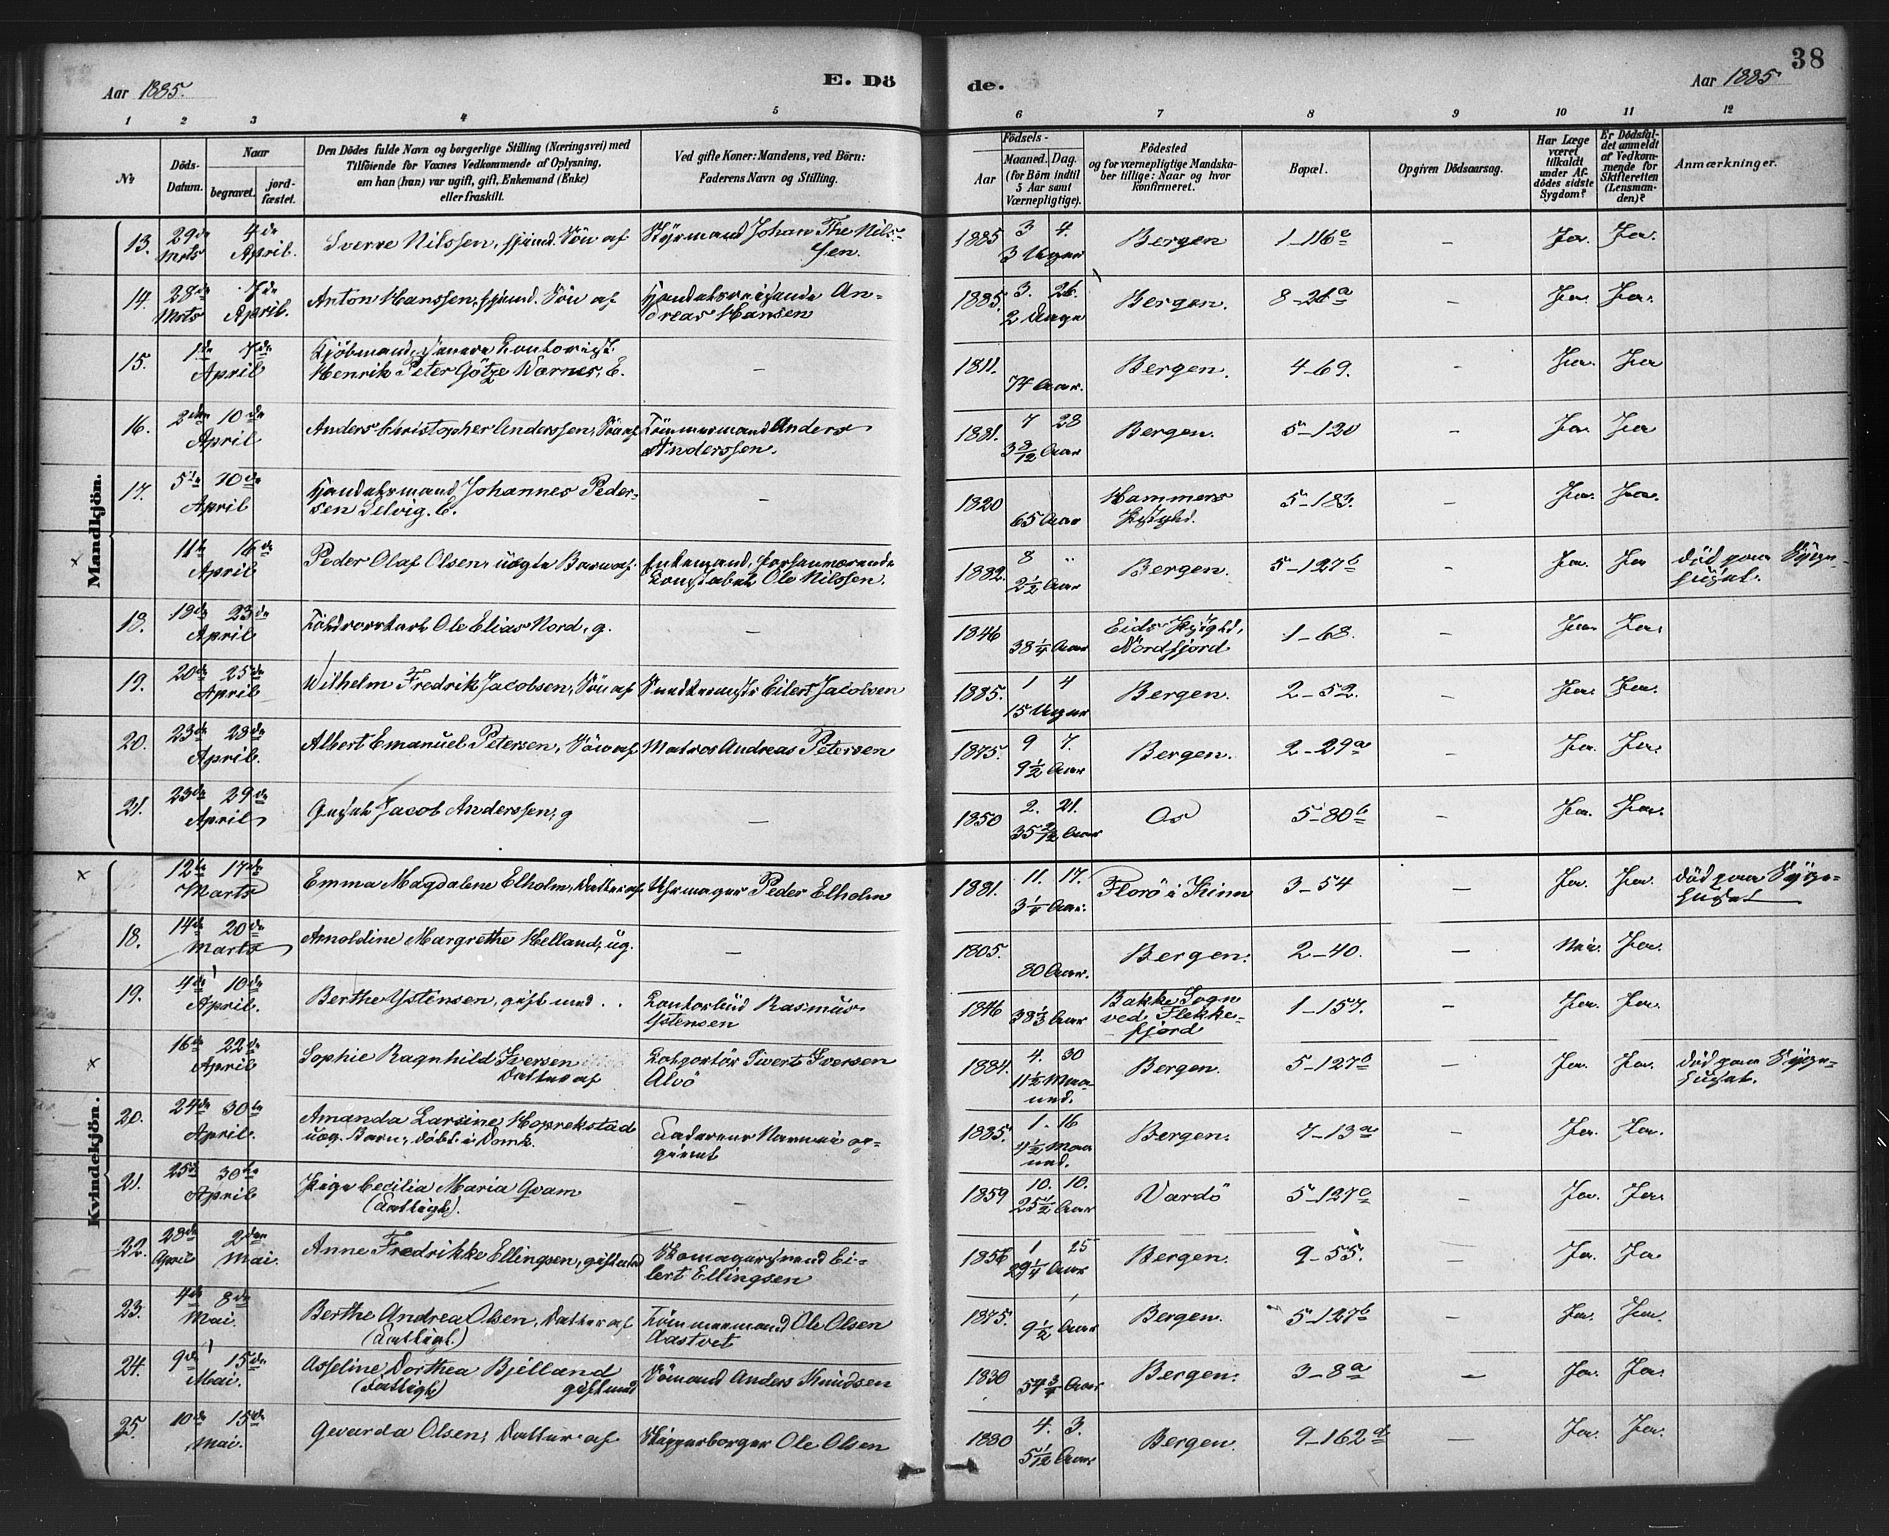 38
Aar 1885.
E. Dö
de.
Aar 1885
1 2 3 4 5
6 7 8 9 10 11 12
№
Döds-
Datum.
Naar
begravet.
jord-
fæstet.
Den Dödes fulde Navn og borgerlige Stilling (Næringsvei) med
Tilföiende for Voxnes Vedkommende af Oplysning,
om han (hun) var ugift, gift, Enkemand (Enke)
eller fraskilt.
Ved gifte Koner: Mandens, ved Börn:
Faderens Navn og Stilling.
Aar
Födsels-
Maaned. Dag.
(for Börn indtil
5 Aar samt
Værnepligtige).
Födested
og for værnepligtige Mandska-
ber tillige: Naar og hvor
konfirmeret.
Bopæl.
Opgiven Dödsaarsag.
Har Læge
været
tilkaldt
under Af-
dödes sidste
Sygdom?
Er Dödsfal-
det anmeldt
af Vedkom-
mende for
Skifteretten
(Lensman-
den)?
Anmærkninger.
Mandkjön.
13. 29de Marts 4de April. Sverre Nilssen, Søn af Styrmand Johan The Nils-
sen. 1885 3 4. 3 Uger Bergen 1-116c - Ja. Ja.
14. 28de Marts 7de April. Anton Hanssen, Søn af Handelsreisende An-
dreas Hansen 1885. 3. 26. 2 Dage Bergen. 8-21a - Ja. Ja.
15. 1de April 7de Kjøbmand, senere Kontorist
Henrik Peter Götze Warner, E. - 1811. 74 Aar. Bergen. 4-69. - Ja. Ja
16. 2den April 10de Anders Christopher Anderssen, Søn af Tömmermand Anders
Anderssen. 1881. 7 28 3 8/12 Aar Bergen. 5-120 - Ja. Ja
17. 5te April 10de Handelsmand Johannes Peder-
sen Selvig. E. - 1820 65 Aar Hammers
Prstgjd. 5-183. - Ja. Ja.
x 11te April 16de Peder Olaf Olsen, uægte Barn af Enkemand, forhenværende
Konstabel Ole Nilssen. 1882. 8 " 2 1/2 Aar Bergen. 5-127b - Ja. Ja død paa Syge-
huset.
18. 19de April 23de Ole Elias Nord, g. - 1846 38 1/4 Aar Eids Prstgjd,
Nordfjord 1-68. - Ja. Ja.
19. 20de April 25de Wilhelm Fredrik Jacobsen, Søn af Eilert Jacobsen 1885. 1 4 15 Uger Bergen. 2-52. - Ja. Ja.
20. 23de April. 28de Albert Emanuel Petersen, Søn af Matros Andreas Petersen 1875. 9 7. 9 1/2 Aar Bergen. 2-29a - Ja. Ja.
21. 23de April 29de Jacob Anderssen, g - 1850 2. 21. 35 2/12 Aar Os 5-80b - Ja. Ja.
Kvindekjön.
x 12te Marts 17de Emma Magdalene Elholm, Datter af Uhrmager Peder Elholm 1881. 11. 17. 3 1/4 Aar. Florö i Kinn 3-54 - Ja. Ja. død paa Syge-
huset
18. 14de Marts 20de Arnoldine Margrethe Helland, ug. - 1805. 80 Aar. Bergen. 2-40. - Nei. Ja.
19. 4de April. 10de Berthe Ystensen, gift med . . Kontorbud Rasmus
Ystensen 1846 38 1/3 Aar Bakke Sogn
ved Flekke-
fjord 1-157. - Ja. Ja.
x 16de April 22de Sophie Ragnhild Iversen
Datter af Sivert Iversen
Alvö 1884. 4. 30 11 1/2 Maa-
ned. Bergen. 5-127b - Ja. Ja. død paa Syge-
huset.
20. 24de April. 30te Amanda Larsine Hoprekstad
uæg. Barn, döbt i Domk. Faderens Navn ei op-
givet 1885. 1. 16 4 1/2 Maa
ned. Bergen. 7-13a - Ja. Ja.
21. 25de April 30te Pige Cecilia Maria Gvam
(Fattigl.) - 1859 10. 10. 25 1/2 Aar Vardö 5-127c - Ja. Ja.
22. 28de April 2den Mai. Anne Fredrikke Ellingsen, gift med Skomagersvend Ei-
lert Ellingsen 1856 1 25 29 1/4 Aar Bergen. 9-55. - Ja. Ja
23. 4de Mai. 8de Berthe Andrea Olsen, Datter af
(Fattigl.) Tömmermand Ole Olsen
Aastvet 1875. 9 1/2 Aar Bergen. 5-127b - Ja. Ja.
24. 9de Mai. 15de Asseline Dorthea Bjelland
(Fattigl) gift med Sömand Anders Knudsen 1830 54 3/4 Aar Bergen. 3-8a - Ja. Ja.
25. 10de Mai. 15de Gevarda Olsen, Datter af Skipperborger Ole Olsen 1880 4. 3. 5 1/12 Aar Bergen. 9-162d - Ja. Ja.